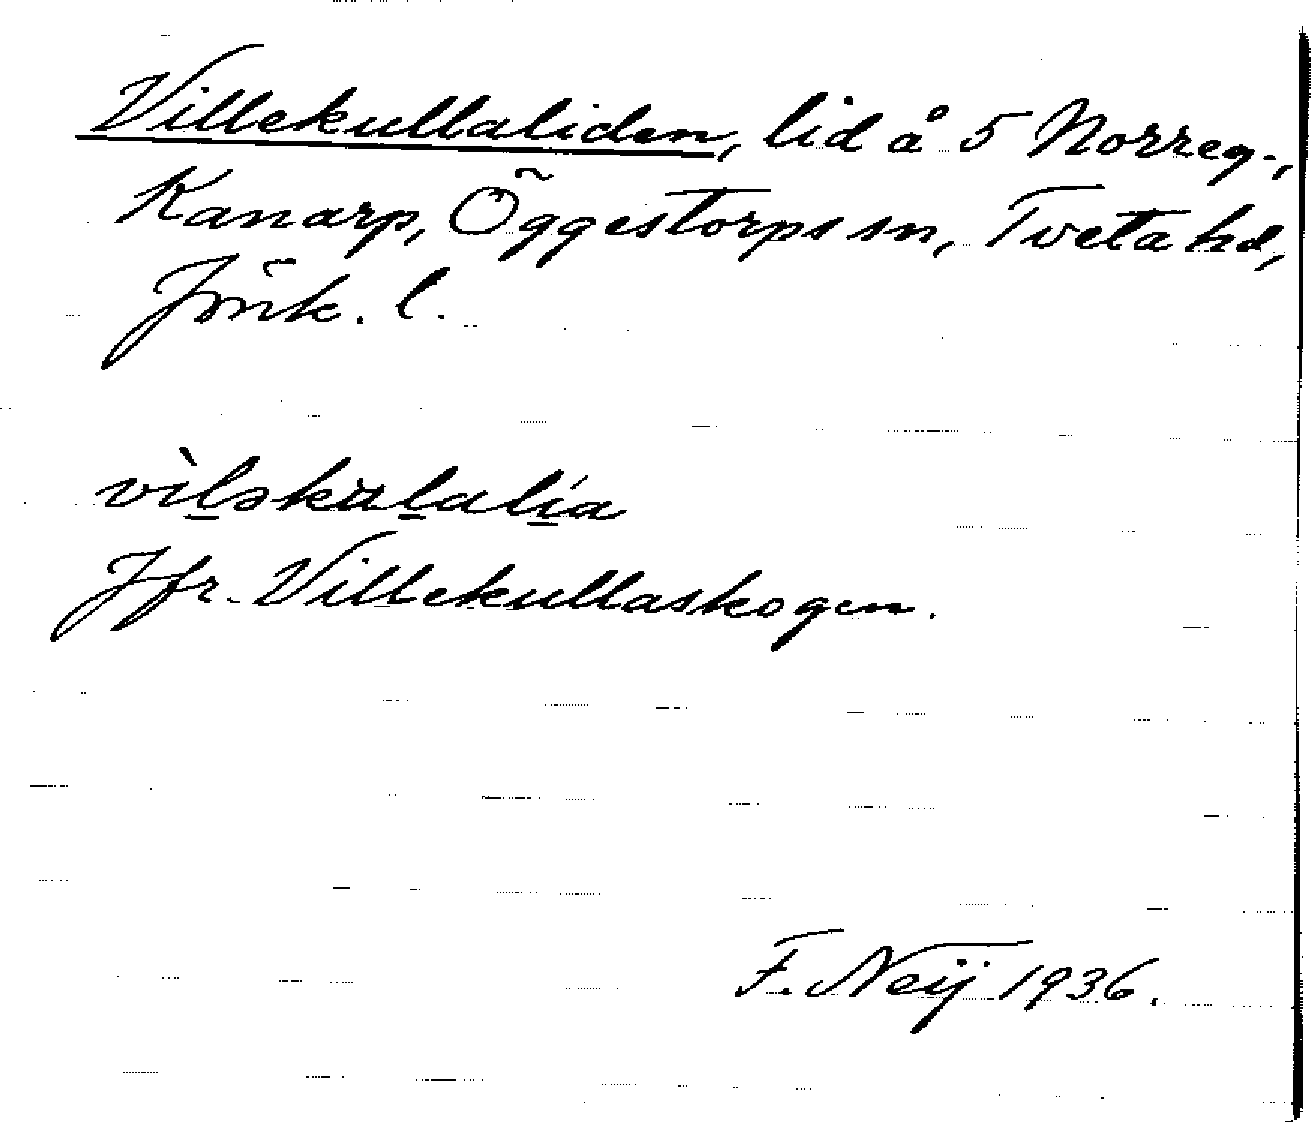 Villekullaliden, lid å 5 Norreg.,
Kanarp, Öggestorps sn, Tveta hd,
Jönk. l.
vìləkulalía
Jfr. Villekullaskogen.
F. Neij 1936.